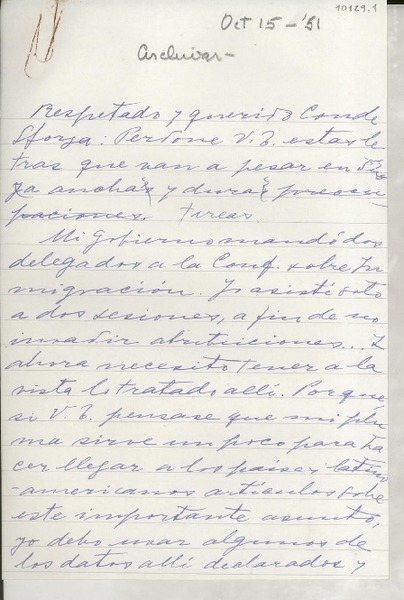 10129.1
Oct 15 - '51
Archivar -
Respetado y querido Conde
Sforza: Perdone V. E. estas le
tras que van a pesar en Su
ya anchas y duras preocu
paciones. tareas.
Mi Gobierno mandó dos
delegados a la Conf. sobre In
migración. Yo asistí solo
a dos sesiones, a fin de no
invadir atribuciones... Y
ahora necesito tener a la
vista lo tratado allí. Porque
si V. E. pensase que mi plu
ma sirve un poco para ha
cer llegar a los países latino
-americanos artículos sobre
este importante asunto,
yo debo usar algunos de
los datos allí declarados y